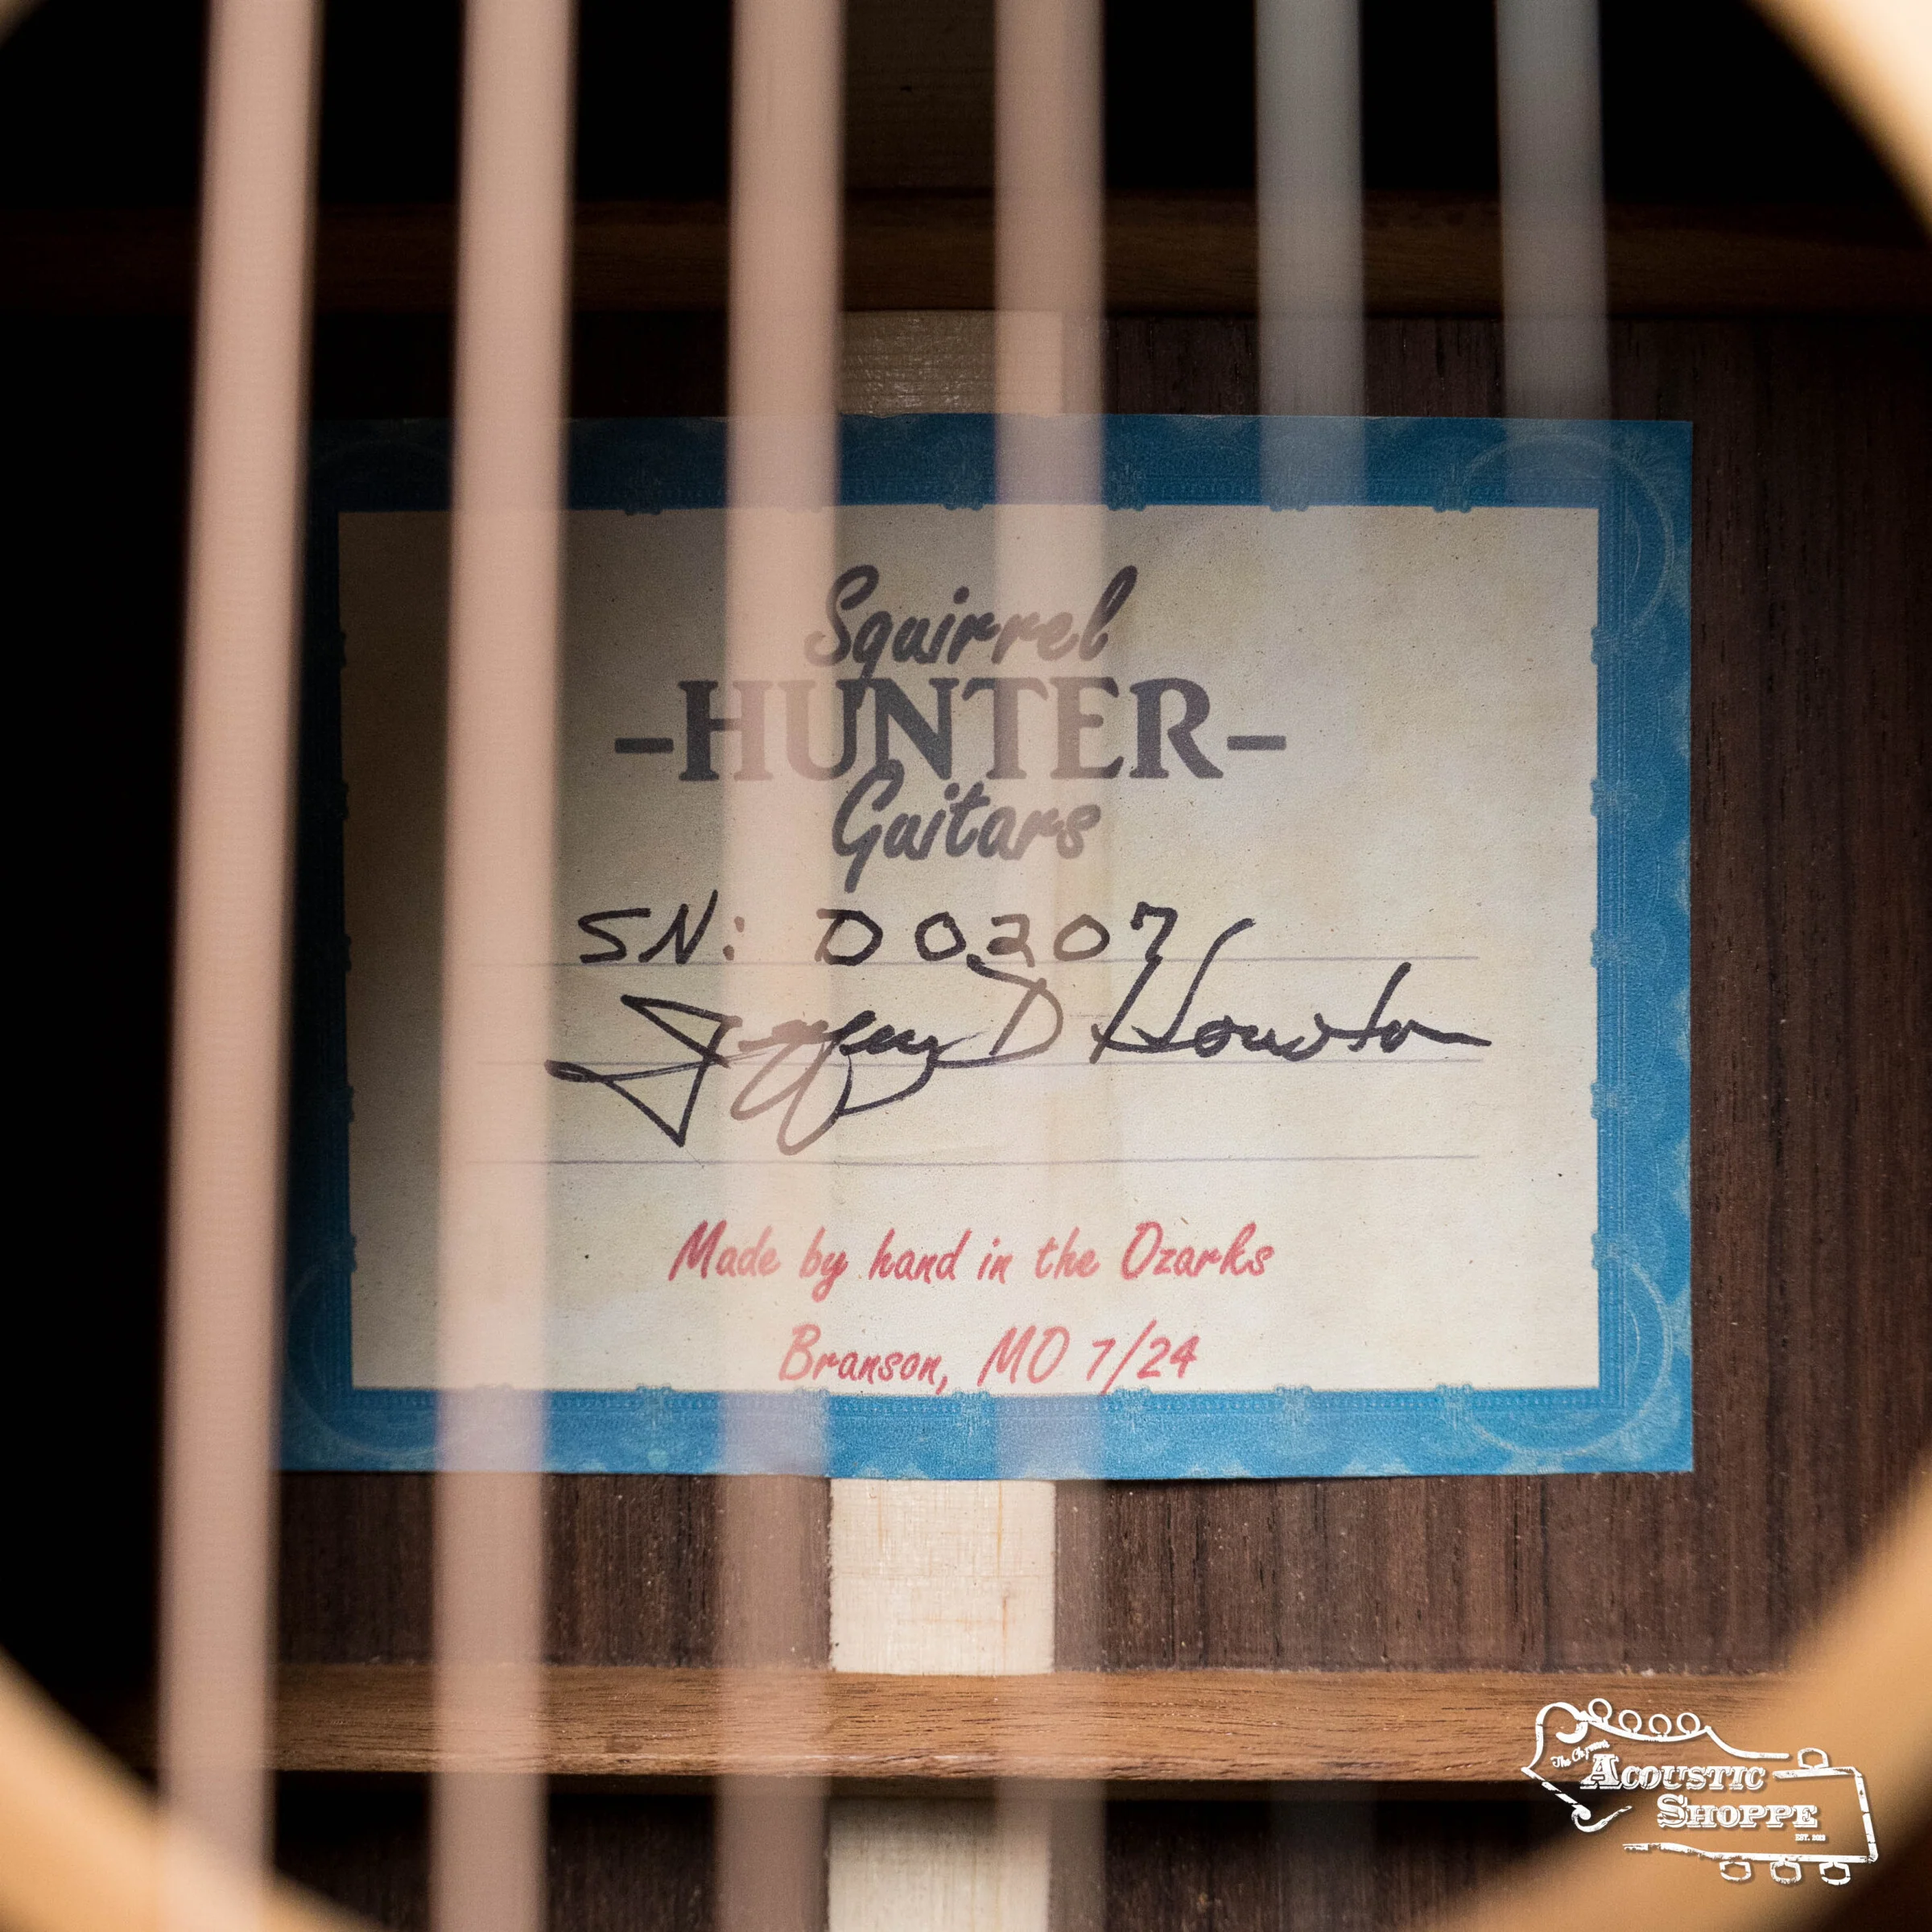 Squirrel
-HUNTER-
Guitars
SN: D0207
Jeffrey D Houston
Made by hand in the Ozarks
Branson, MO 7/24
ACOUSTIC
SHOPPE